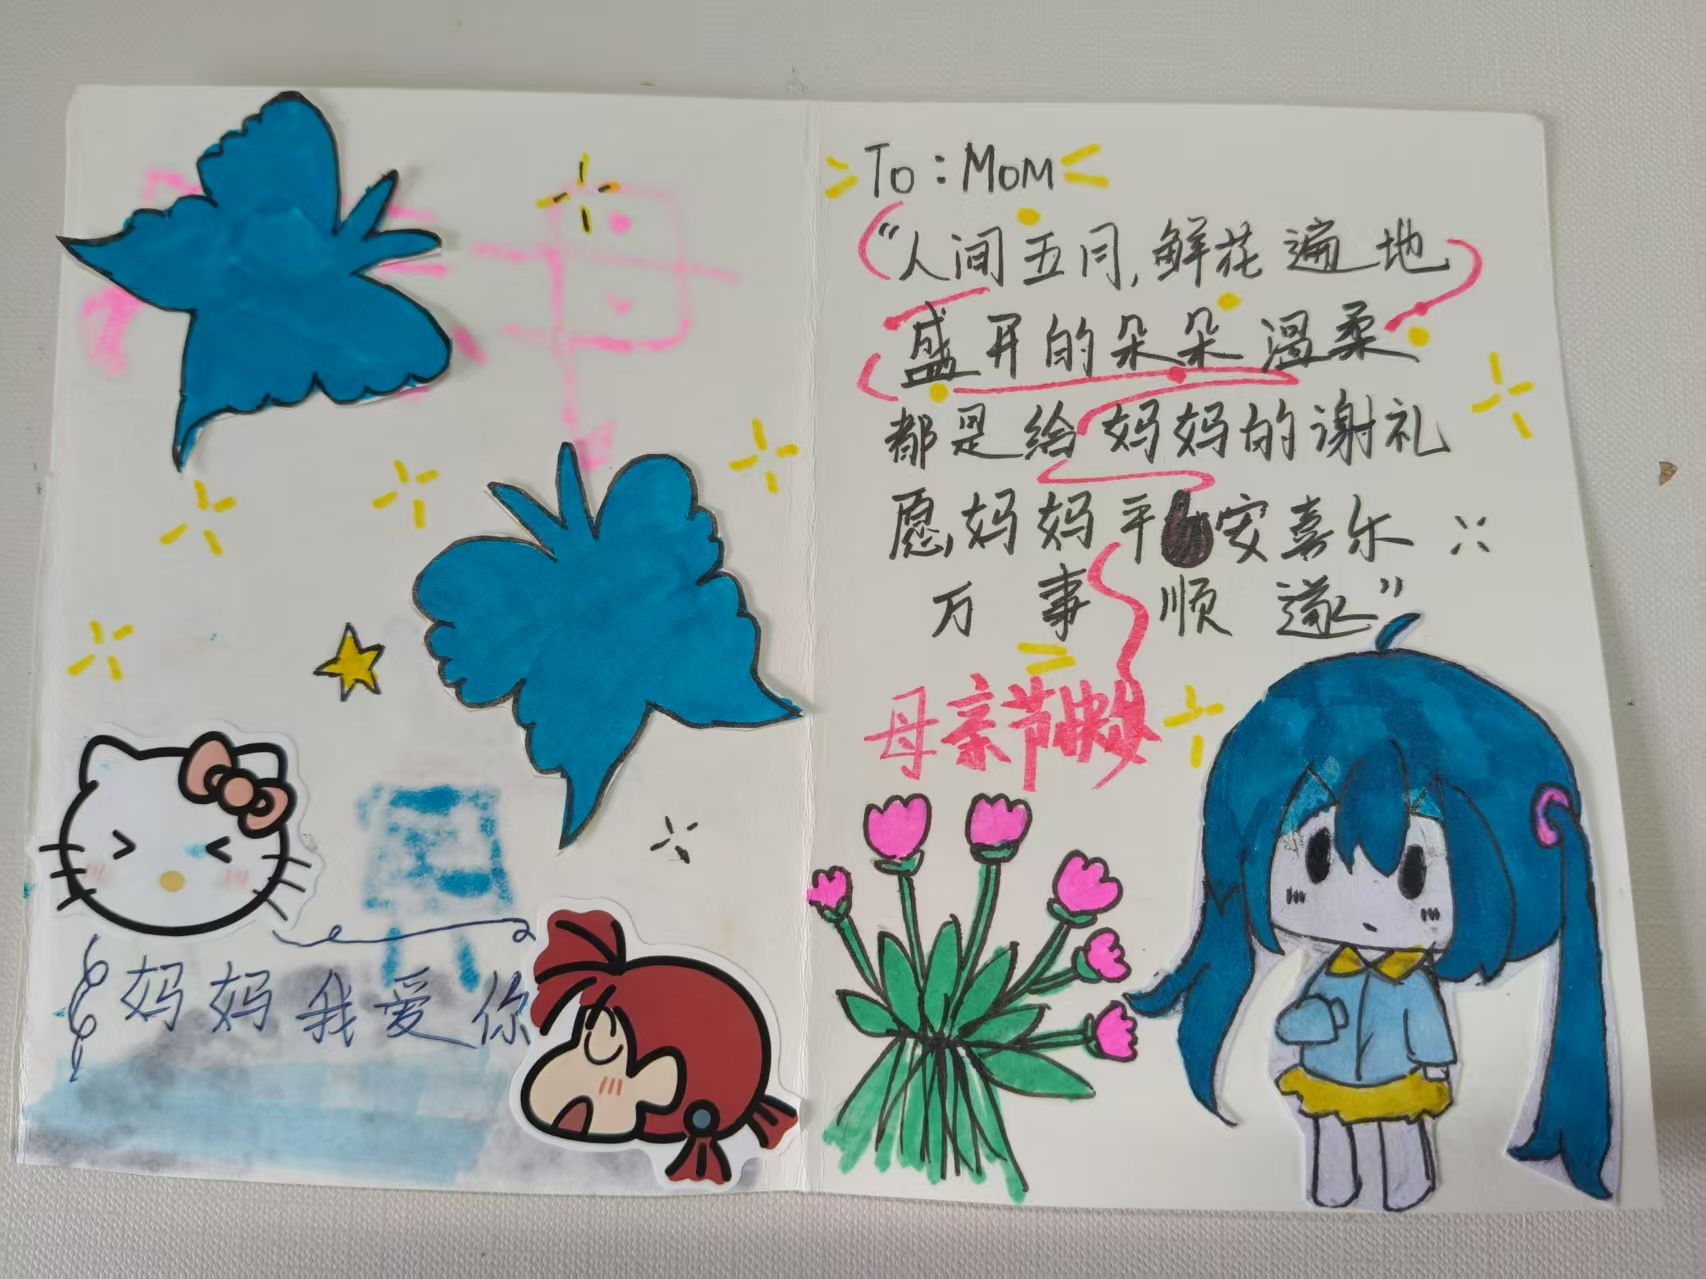 To：Mom
“人间五月,鲜花遍地
盛开的朵朵温柔
都是给妈妈的谢礼
愿妈妈平安喜乐
万事顺遂”
母亲节快乐
妈妈我爱你